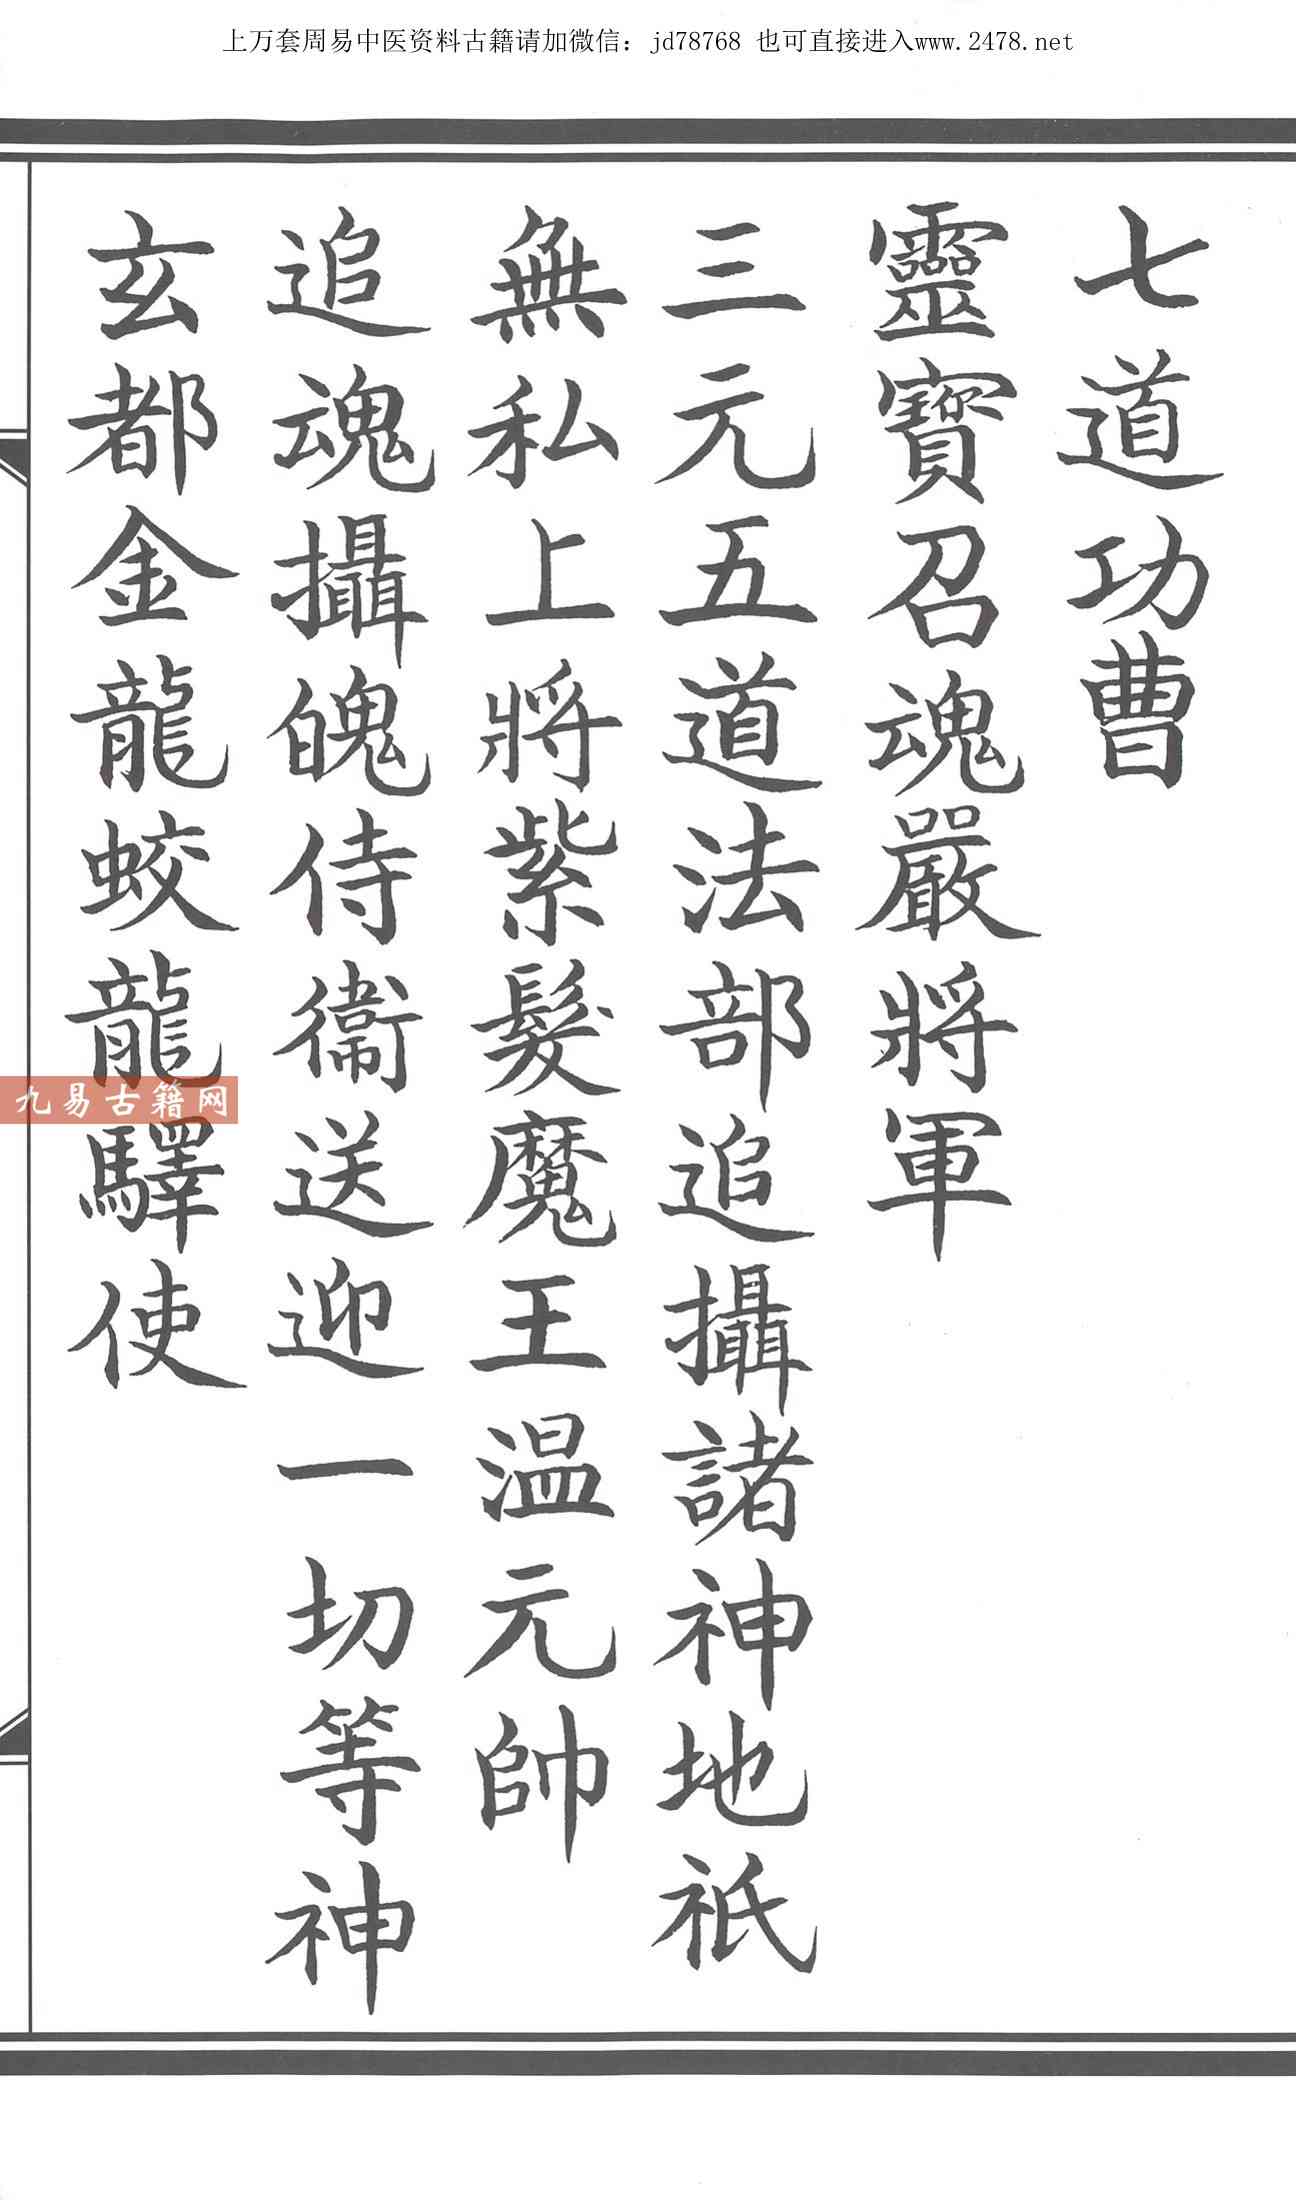 上万套周易中医资料古籍请加微信：jd78768 也可直接进入www.2478.net
七道功曹
靈寳召魂嚴將軍
三元五道法部追攝諸神地祇
無私上將紫髮魔王温元帥
追魂攝魄侍衞送迎一切等神
玄都金龍蛟龍驛使
九易古籍网